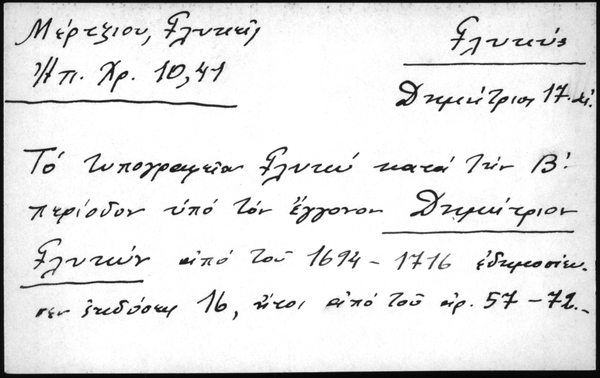 Μέρτζιου, Γλυκεῖς
Ἠπ. Χρ. 10,41
Γλυκύς
Δημήτριος 17. αἰ.
Τό τυπογραφεῖον Γλυκύ κατά τήν Β΄
περίοδον ὑπό τόν ἔγγονον Δημήτριον
Γλυκύν ἀπό τοῦ 1694 - 1716 ἐδημοσίευ-
σεν ἐκδόσεις 16, ἤτοι ἀπό τοῦ ἀρ. 57 - 72.-